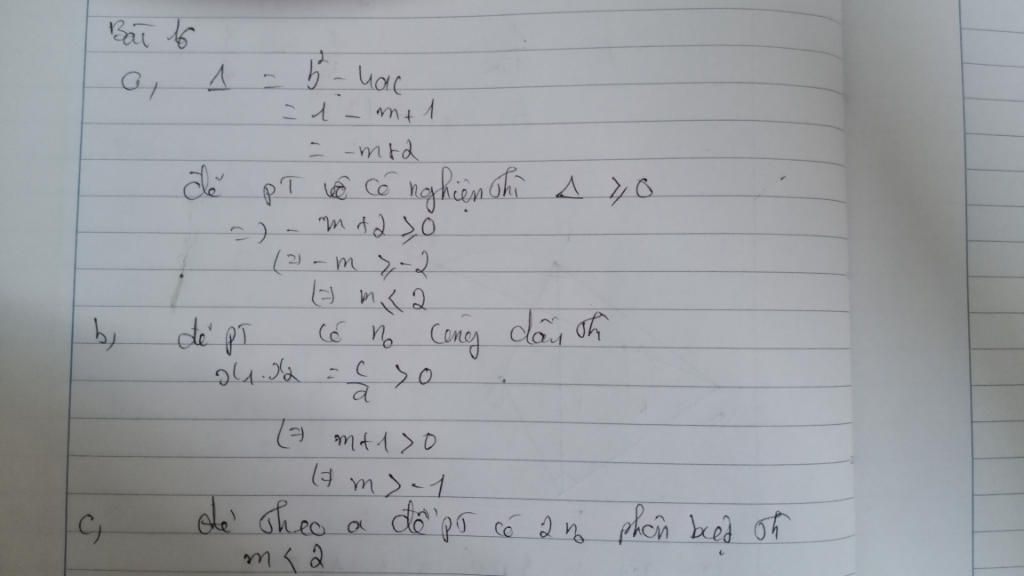 Bài 16
a, Δ = b² - 4ac
= 1 - m+1
= -m+2
để PT có nghiện thì Δ ≥ 0
=> - m+2 ≥ 0
(=) -m ≥ -2
(=) m ≤ 2
b, để PT có no cùng dấu th
x1.x2 = c/a > 0
(=) m+1 > 0
(=) m > -1
c, để theo a để PT có 2 no phân biệt th
m < 2